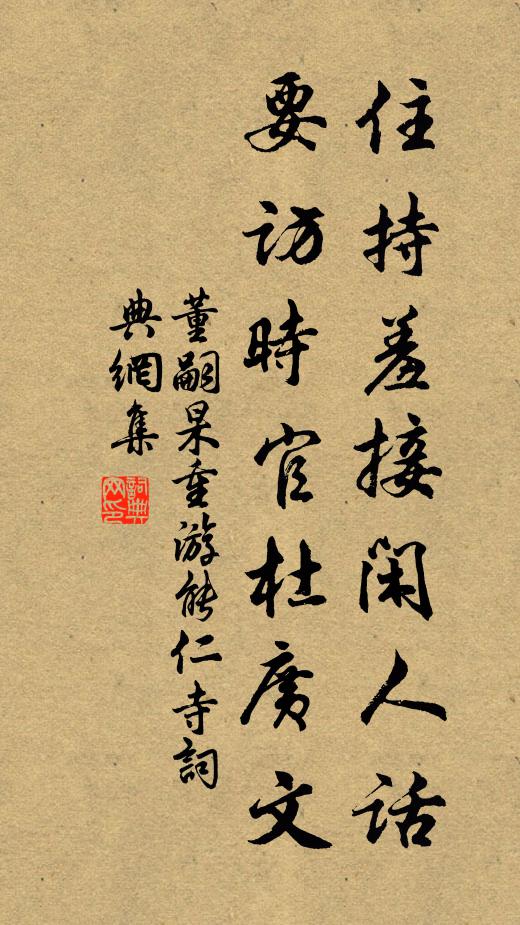 住持羞接閑人話
要訪時官杜廣文
董嗣杲重游能仁寺詞
典網集
詞典網印